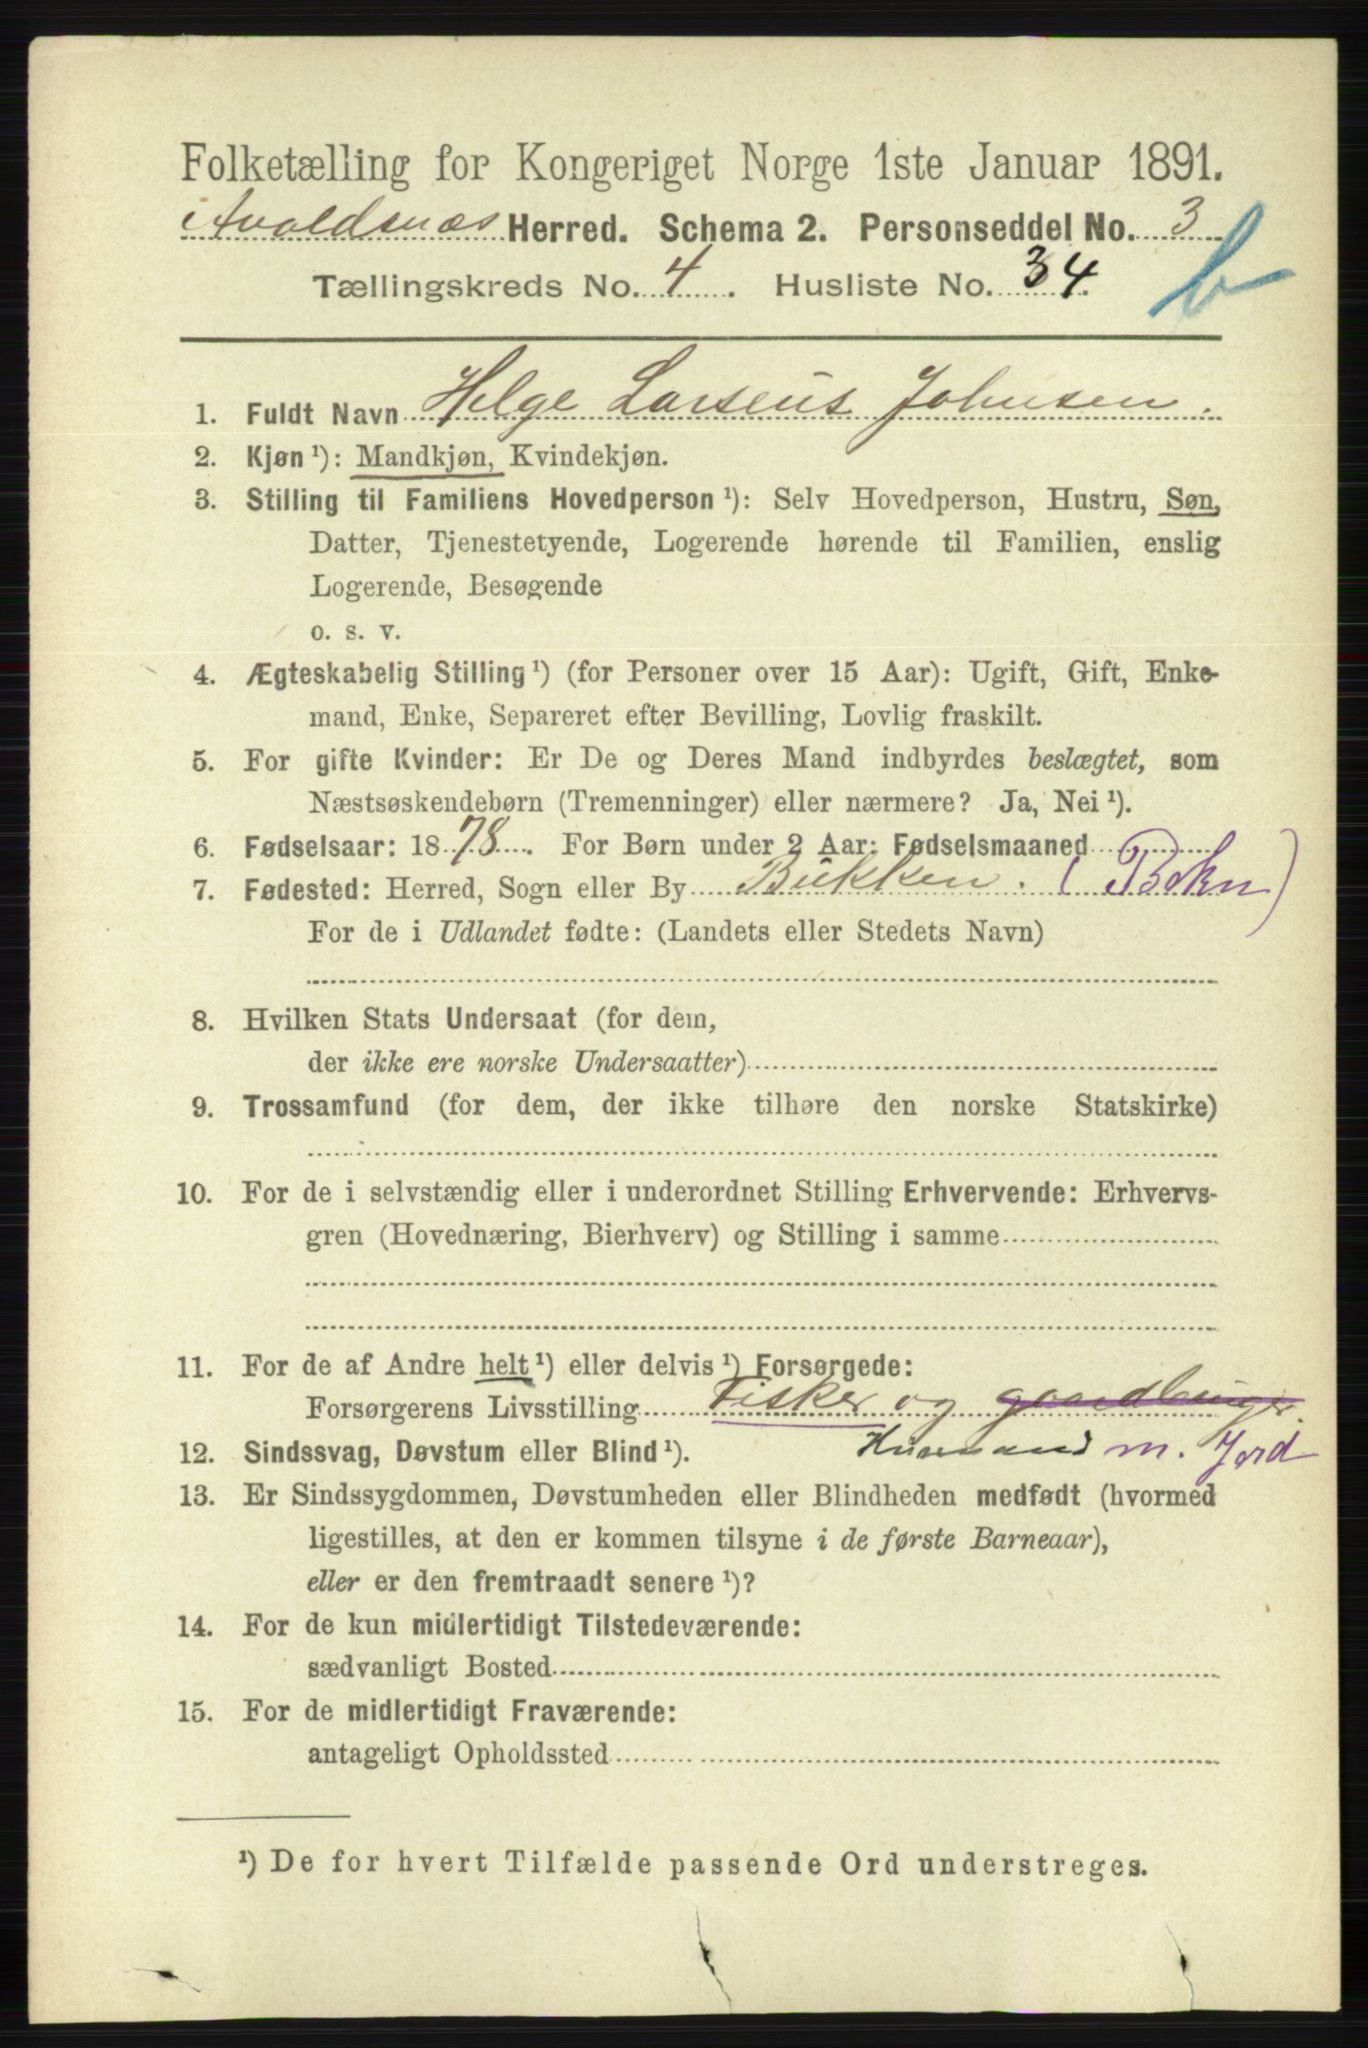 Folketælling for Kongeriget Norge 1ste Januar 1891.
Avaldsnæs Herred. Schema 2. Personseddel No. 3
Tællingskreds No. 4. Husliste No. 34.
b
1. Fuldt Navn Helge Larseus Johnsen.
2. Kjøn ¹): Mandkjøn, Kvindekjøn.
3. Stilling til Familiens Hovedperson ¹): Selv Hovedperson, Hustru, Søn,
Datter, Tjenestetyende, Logerende hørende til Familien, enslig
Logerende, Besøgende
o. s. v.
4. Ægteskabelig Stilling ¹) (for Personer over 15 Aar): Ugift, Gift, Enke-
mand, Enke, Separeret efter Bevilling, Lovlig fraskilt.
5. For gifte Kvinder: Er De og Deres Mand indbyrdes beslægtet, som
Næstsøskendebørn (Tremenninger) eller nærmere? Ja, Nei ¹).
6. Fødselsaar: 1878. For Børn under 2 Aar: Fødselsmaaned
7. Fødested: Herred, Sogn eller By Bukken. (Bokn)
For de i Udlandet fødte: (Landets eller Stedets Navn)
8. Hvilken Stats Undersaat (for dem,
der ikke ere norske Undersaatter)
9. Trossamfund (for dem, der ikke tilhøre den norske Statskirke)
10. For de i selvstændig eller i underordnet Stilling Erhvervende: Erhvervs-
gren (Hovednæring, Bierhverv) og Stilling i samme
11. For de af Andre helt ¹) eller delvis ¹) Forsørgede:
Forsørgerens Livsstilling Fisker og gaardbruger.
12. Sindssvag, Døvstum eller Blind ¹). Husmand m. Jord
13. Er Sindssygdommen, Døvstumheden eller Blindheden medfødt (hvormed
ligestilles, at den er kommen tilsyne i de første Barneaar),
eller er den fremtraadt senere ¹)?
14. For de kun midlertidigt Tilstedeværende:
sædvanligt Bosted
15. For de midlertidigt Fraværende:
antageligt Opholdssted
¹) De for hvert Tilfælde passende Ord understreges.